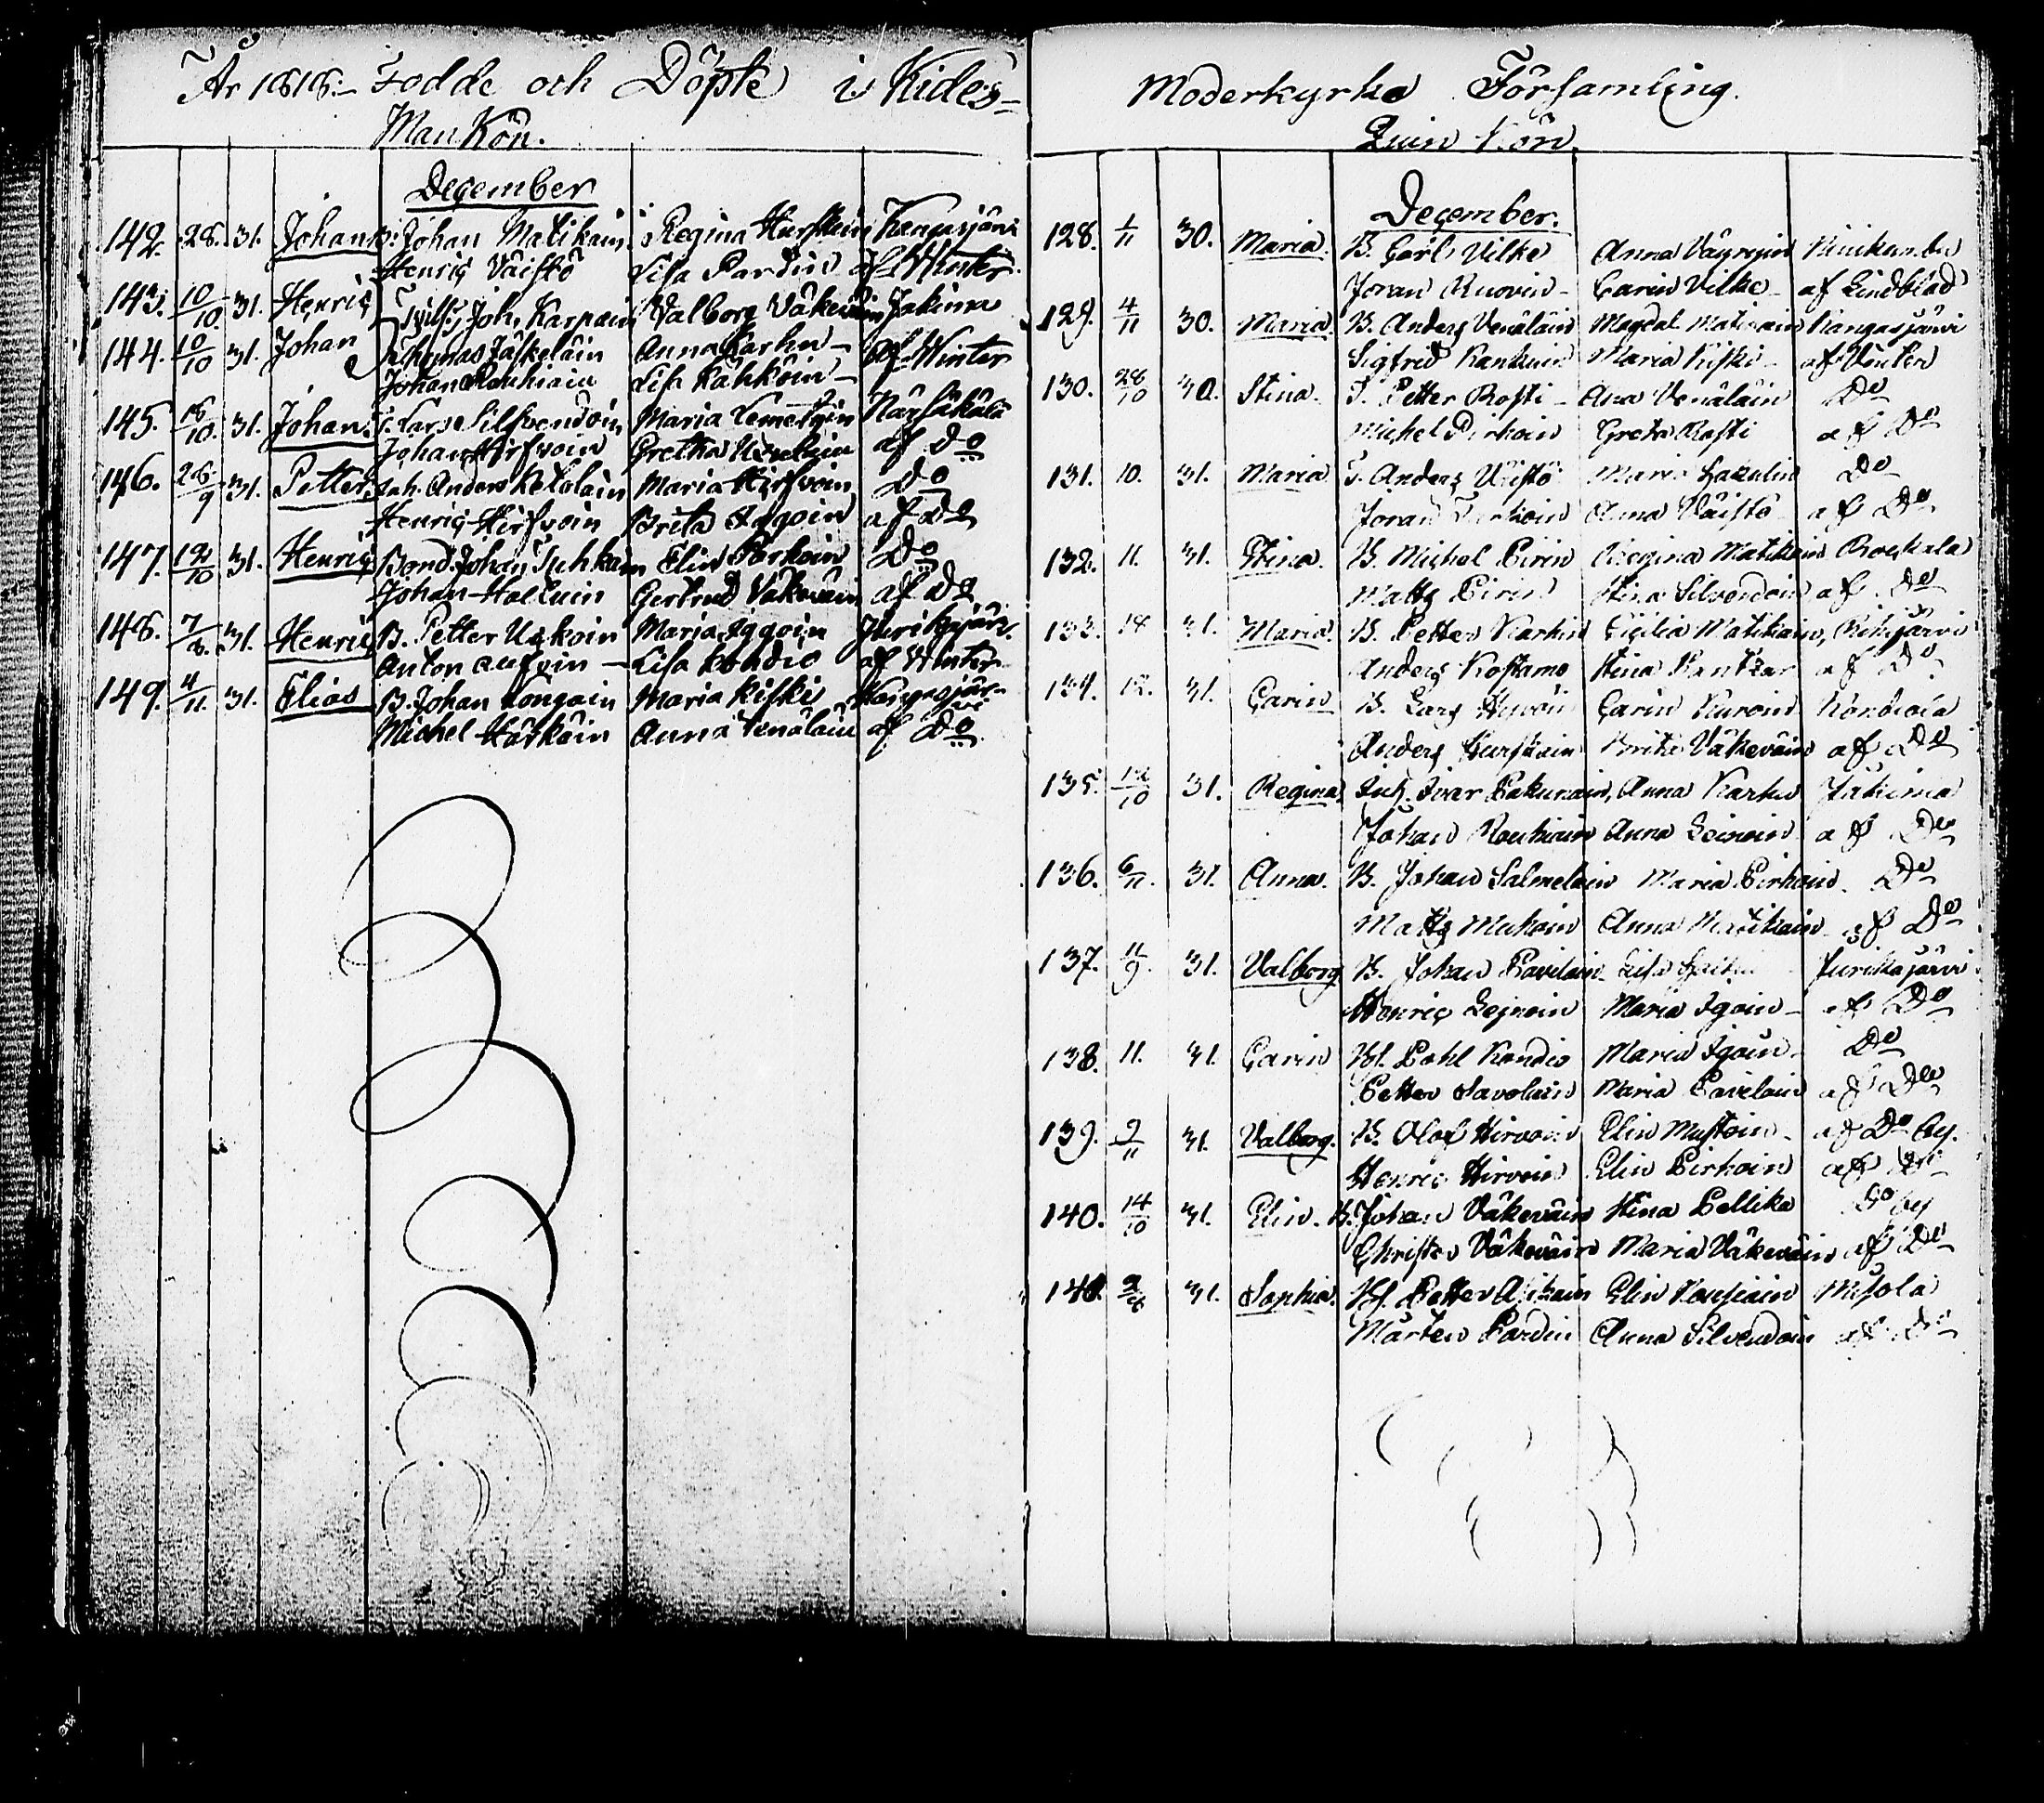 År 1818. Födde och Döpte i Kides=
Man Kön.
December
142. 28. 31. Johan B: Johan Matikain Regina Hurskain Kangasjärvi
Henric Väistö Lisa Pardin af Winter
143. 10/10. 31. Henric Joh. Karpain Valborg Väkeväin Jakima
144. 10/10 31. Johan Thomas Jäskeläin Anna Karhu – af Winter
Johan Rouhiain Lisa Kähköin –
145. 18/10. 31. Johan. Lars Silfvendoin Maria Kemettin Närsäkälä
Johan Hirfvoin Gretha af Do
146. 28/9 31. Petter Inh. Anders Ketolain Maria Hirfvoin Do
Henric Hirfvoin Brita Iggoin af Do
147. 12/10 31. Henric Bond. Johan Tuhkain Elin Pirhoin Do
Johan Halluin Gertrud Väkeväin af Do
148. 7/8. 31. Henric B. Petter Uskoin Maria Iggoin Jurikajärv.
Anton – Lisa Kondio af Winter
149. 4/11. 31. Elias B. Johan Kongain Maria Kiski Kangasjär-
vi
Michel Härköin Anna Venäläin af Do
Moderkyrko Församling.
Quin Kön.
December.
128. 1/11 30. Maria. B. Carl Vilke Anna Väyrynin
Joran Ruovin – Carin Vilke – af Lindblad
129. 4/11 30. Maria. B. Anders Venäläin Magdal. Matikain Kangasjärvi
Sigfrid Kankuin Maria Kiski – af Winter
130. 28/10 30. Stina. T. Petter Rosti – Ana Venäläin Do
Michel Pirhoin Greta Rosti af Do
131. 10. 31. Maria T. Anders Väistö Maria Do
Joran Anna Väistö af Do
132. 11. 31. Stina. B. Michel Pirin Regina Matikain
Matts Pirin Stina Silvendoin af Do
133. 18 31. Maria. B. Petter Karhu Cicilia Matikain,
Anders Kostamo Stina af Do
134. 12. 31. Carin B. Lars Hirvoin Carin
Anders Hurskain Brita Väkeväin af Do
135. 12/10 31. Regina. Inh. Ivar Pakurain, Anna Karhu Jakima
Johan Rouhiain Anna Leinoin af Do
136. 6/11. 31. Anna. B. Johan Salmelain Maria Pirhoin. Do
Matts Muhoin Anna Matikain af Do
137. 11/9. 31. Valborg B. Johan Pavilain Lisa Jurikajärvi
Henric Leinoin Maria Igoin – af Do
138. 11. 31. Carin Pohl Kondio Maria Igoin. Do
Petter Savolain Maria Pavilain af Do
139. 9/11 31. Valborg. B. Olof Hirvoin Elin Mustoin – af Do by.
Henric Hirvoin Elin Pirhoin af Do
140. 14/10 31. Elin. B. Johan Väkeväin Stina Pellika Do by
Christer Väkeväin Maria Väkeväin af Do
141. 31. Sophia. Petter Asikain Elin Misola
Mårten Pardin Anna Silvendoin af Do